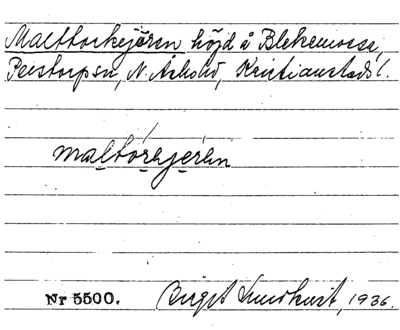 Malttorkejören höjd å Blekemosse,
Perstorp sn, N. Åsbohd, Kristianstads l.
maltórkjerén
Nr 5500. Birgit Lundkvist, 1936.